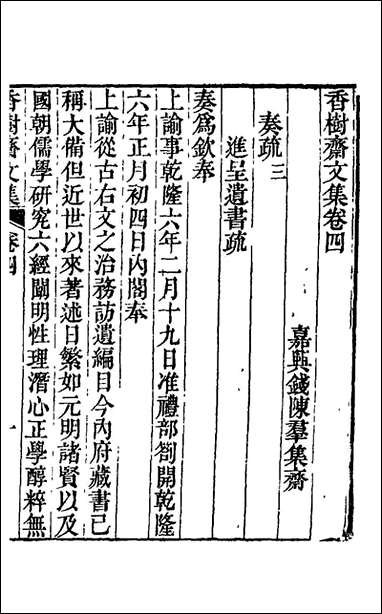 香樹齋文集卷四
嘉興錢陳羣集齋
奏疏三
進呈遺書疏
奏爲欽奉
上諭事乾隆六年二月十九日准禮部劄開乾隆
六年正月初四日內閣奉
上諭從古右文之治務訪遺編目今內府藏書已
稱大備但近世以來著述日繁如元明諸賢以及
國朝儒學硏究六經闡明性理潛心正學醇粹無
香樹齋文集 卷四 一